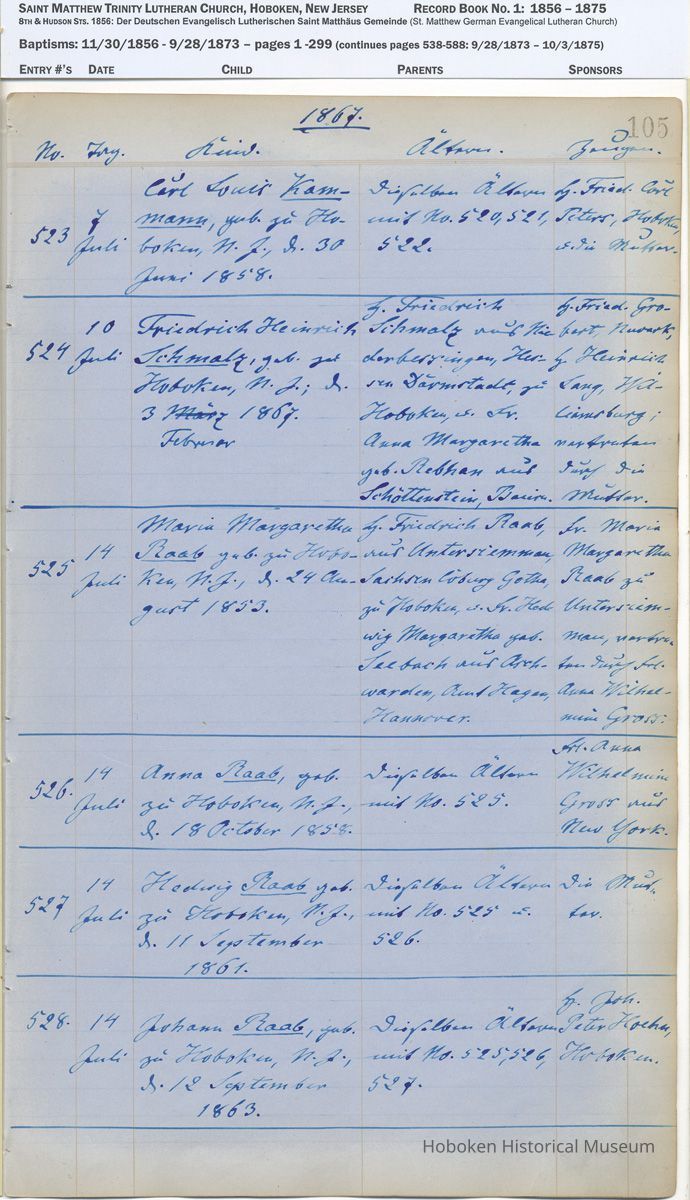 SAINT MATTHEW TRINITY LUTHERAN CHURCH, HOBOKEN, NEW JERSEY RECORD BOOK NO. 1: 1856 – 1875
8TH & HUDSON STS. 1856: Der Deutschen Evangelisch Lutherischen Saint Matthäus Gemeinde (St. Matthew German Evangelical Lutheran Church)
Baptisms: 11/30/1856 - 9/28/1873 – pages 1 -299 (continues pages 538-588: 9/28/1873 – 10/3/1875)
ENTRY #'S DATE CHILD PARENTS SPONSORS
1867.
105
No. Tag. Kind. Ältern. Zeugen.
523
7
Juli
Carl Louis Kam-
mann, geb. zu Ho-
boken, N. J., d. 30
Juni 1858.
Dieselben Ältern
mit No. 520, 521,
522.
H. Fried. Carl
Peters, Hoboken,
u. die Mutter.
524
10
Juli
Friedrich Heinrich
Schmalz, geb. zu
Hoboken, N. J.; d.
3 März 1867.
Februar
H. Friedrich
Schmalz aus Nie
derbessingen, Hes-
sen Darmstadt, zu
Hoboken, u. Fr.
Anna Margaretha
geb. Rebhan aus
Schottenstein, Baiern.
H. Fried. Gro-
bert, Newark,
H. Heinrich
Lang, Wil-
liamsburg;
vertreten
durch die
Mutter.
525
14
Juli
Maria Margaretha
Raab geb. zu Hobo-
ken, N. J., d. 24 Au-
gust 1853.
H. Friedrich Raab,
aus Untersiemman,
Sachsen Coburg Gotha,
zu Hoboken, u. Fr. Hed
wig Margaretha geb.
Seebach aus Asch-
warden, Amt Hagen,
Hannover.
Fr. Maria
Margaretha
Raab zu
Untersiem-
man, vertre-
ten durch Frl.
Anna Wilhel-
mine Gross.
526.
14
Juli
Anna Raab, geb.
zu Hoboken, N. J.,
d. 18 October 1858.
Dieselben Ältern
mit No. 525.
Frl. Anna
Wilhelmine
Gross aus
New York.
527
14
Juli
Hedwig Raab geb.
zu Hoboken, N. J.,
d. 11 September
1861.
Dieselben Ältern
mit No. 525 u.
526.
Die Mut-
ter.
528.
14
Juli
Johann Raab, geb.
zu Hoboken, N. J.,
d. 12 September
1863.
Dieselben Ältern
mit No. 525, 526,
527.
H. Joh.
Peter Hoehn,
Hoboken.
Hoboken Historical Museum